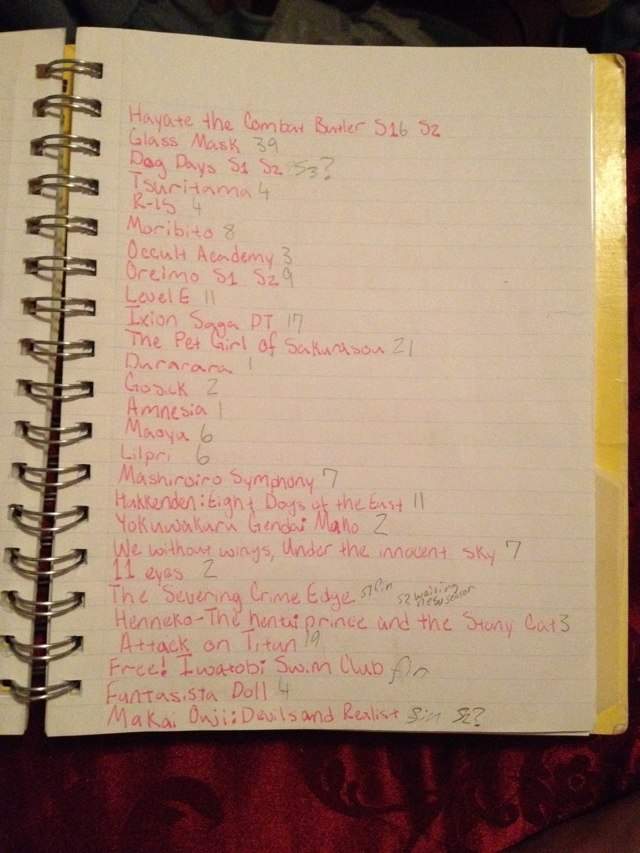 Hayate the Combat Butler S16 S2
Glass Mask 39
Dog Days S1 S2 S3?
Tsuritama 4
R-15 4
Moribito 8
Occult Academy 3
Oreimo S1 S2 9
Level E 11
Ixion Saga DT 17
The Pet Girl of Sakurasou 21
Durarara 1
Gosick 2
Amnesia 1
Maoyu 6
Lilpri 6
Mashiroiro Symphony 7
Hakkenden: Eight Days of the East 11
Yokuwakaru Gendai Maho 2
We without wings, Under the innocent sky 7
11 eyes 2
The Severing Crime Edge S1 fin S2 waiting
Henneko-The hentai prince and the Stony Cat 3
Attack on Titan 19
Free! Iwatobi Swim Club fin
Fantasista Doll 4
Makai Ouji: Devils and Realist fin S2?